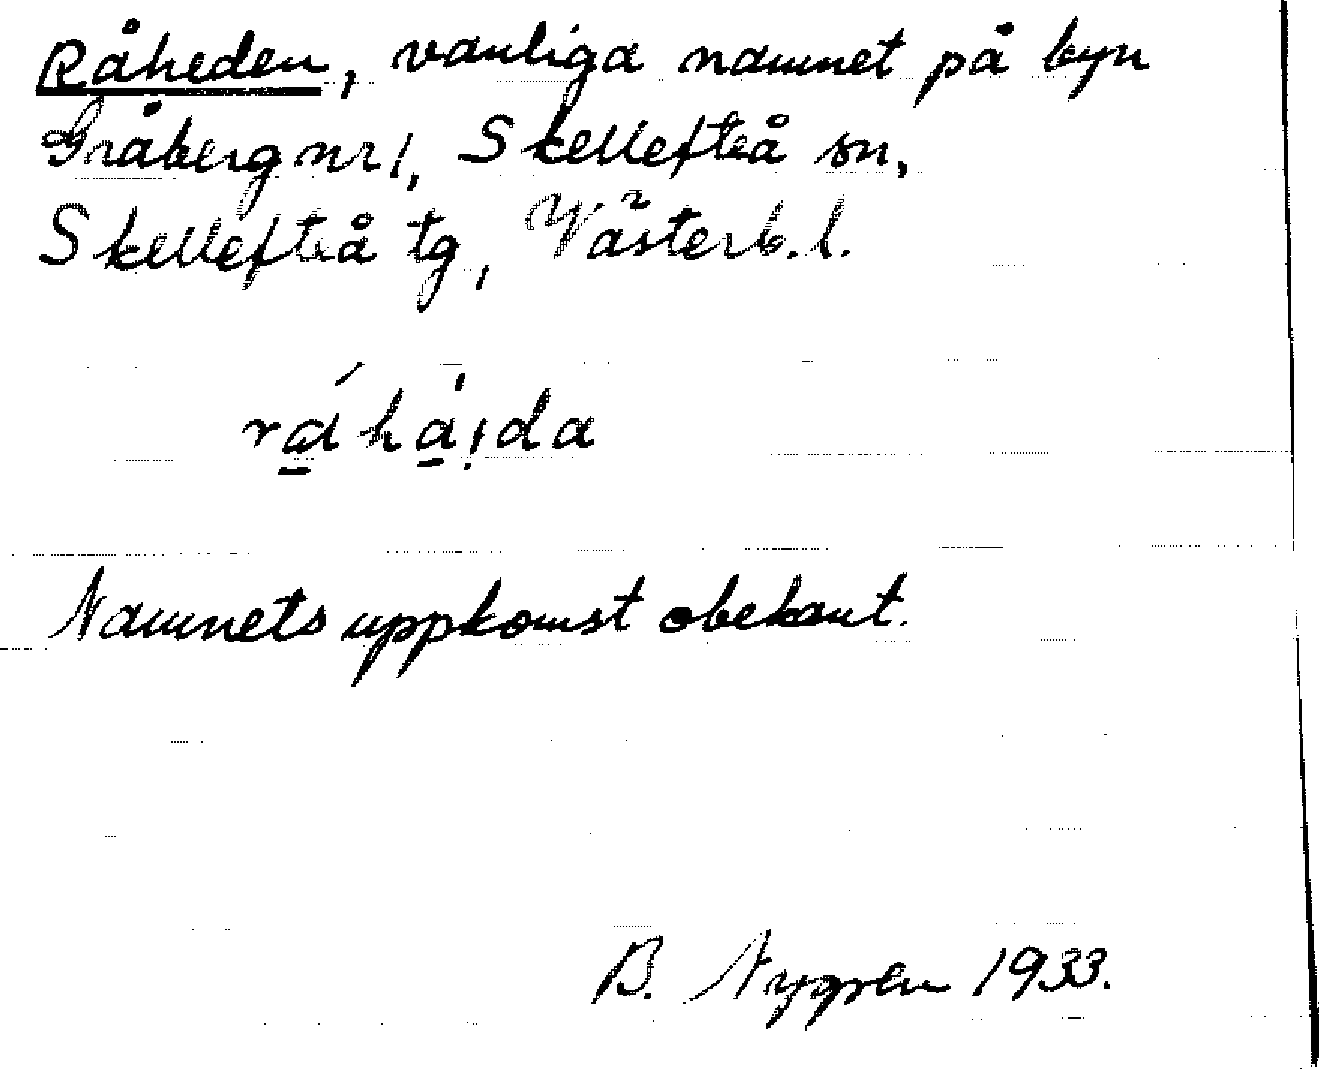 Råheden, vanliga namnet på byn
Gråberg nr 1, Skellefteå sn,
Skellefteå tg, Västerb. l.
Namnets uppkomst obekant.
B. Nygren 1933.